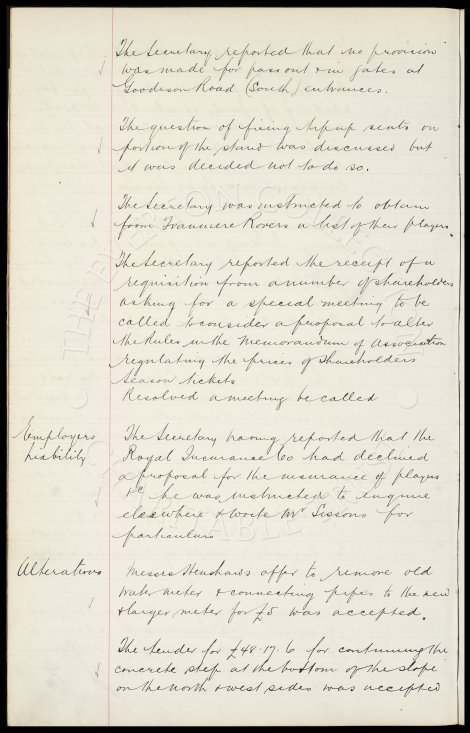 The Secretary reported that no provision
was made for pass out & in gates at
Goodison Road (South) entrances.
The question of fixing tip up seats on
portion of the stand was discussed but
it was decided not to do so.
The Secretary was instructed to obtain
from Tranmere Rovers a list of their players.
The Secretary reported the receipt of a
requisition from a number of shareholders
asking for a special meeting to be
called to consider a proposal to alter
the Rules in the Memorandum of Association
regulating the prices of shareholders
season tickets
Resolved a meeting be called
Employers
Liability
The Secretary having reported that the
Royal Insurance Co had declined
a proposal for the insurance of players
&c he was instructed to inquire
elsewhere & write Mr Sissons for
particulars
Alterations
Messrs Henshaws offer to remove old
water meter & connecting pipes to the new
& larger meter for £5 was accepted.
The tender for £48.17.6 for continuing the
concrete step at the bottom of the slope
on the north & west sides was accepted
THE EVERTON COLLECTION
CHARITABLE